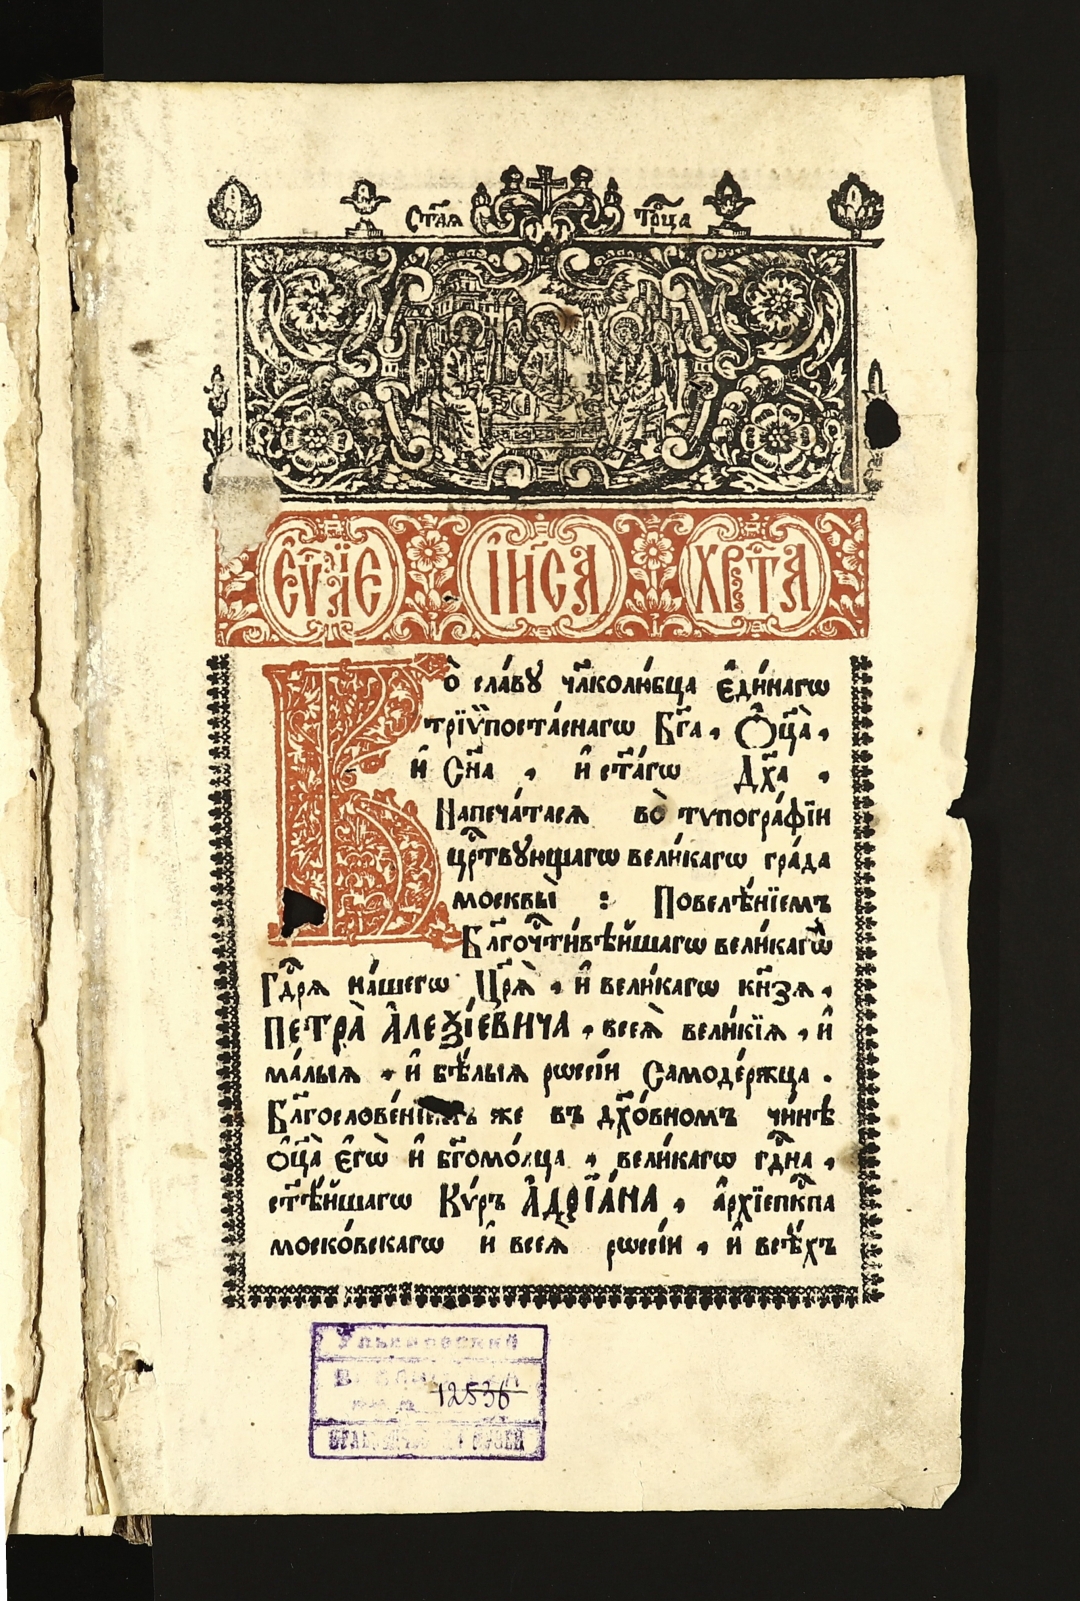 Ст҃аѧ Трⷪ҇ца
Є҆ѵⷢ҇лїе І҆и҃са Хрⷭ҇та̀
Во̀ сла́вꙋ чл҃колю́бца є҆ди́нагѡ
трїѷпоста́снагѡ Бг҃а, Ѻ҆ц҃а̀,
и҆ Сн҃а , и҆ ст҃а́гѡ Дх҃а ,
Напеча́тасѧ во̀ тѵпогра́фїи
црⷭ҇твꙋющагѡ вели́кагѡ гра́да
москвы̀ : Повелѣ́нїемъ
Бл҃гочⷭ҇ти́вѣйшагѡ вели́кагѡ
Гдⷭ҇рѧ на́шегѡ Цр҃ѧ̀ , и҆ вели́кагѡ кн҃зѧ ,
ПЕТРА̀ А҆ЛЕѮІ́ЕВИЧА , всеѧ̀ вели́кїѧ , и҆
ма́лыѧ , и҆ бѣ́лыѧ рѡссі́и Самоде́ржца .
Бл҃гослове́нїемъ же въ дх҃о́вномъ чи́нѣ
Ѻ҆ц҃а̀ є҆гѡ̀ и҆ бг҃омо́лца , вели́кагѡ гдⷭ҇на ,
ст҃ѣ́йшагѡ Кѵ́ръ А҆ДРІА́НА , а҆рхїепⷭ҇кпа
моско́вскагѡ и҆ всеѧ̀ рѡссі́и , и҆ всѣ́хъ
Ульяновский
12536